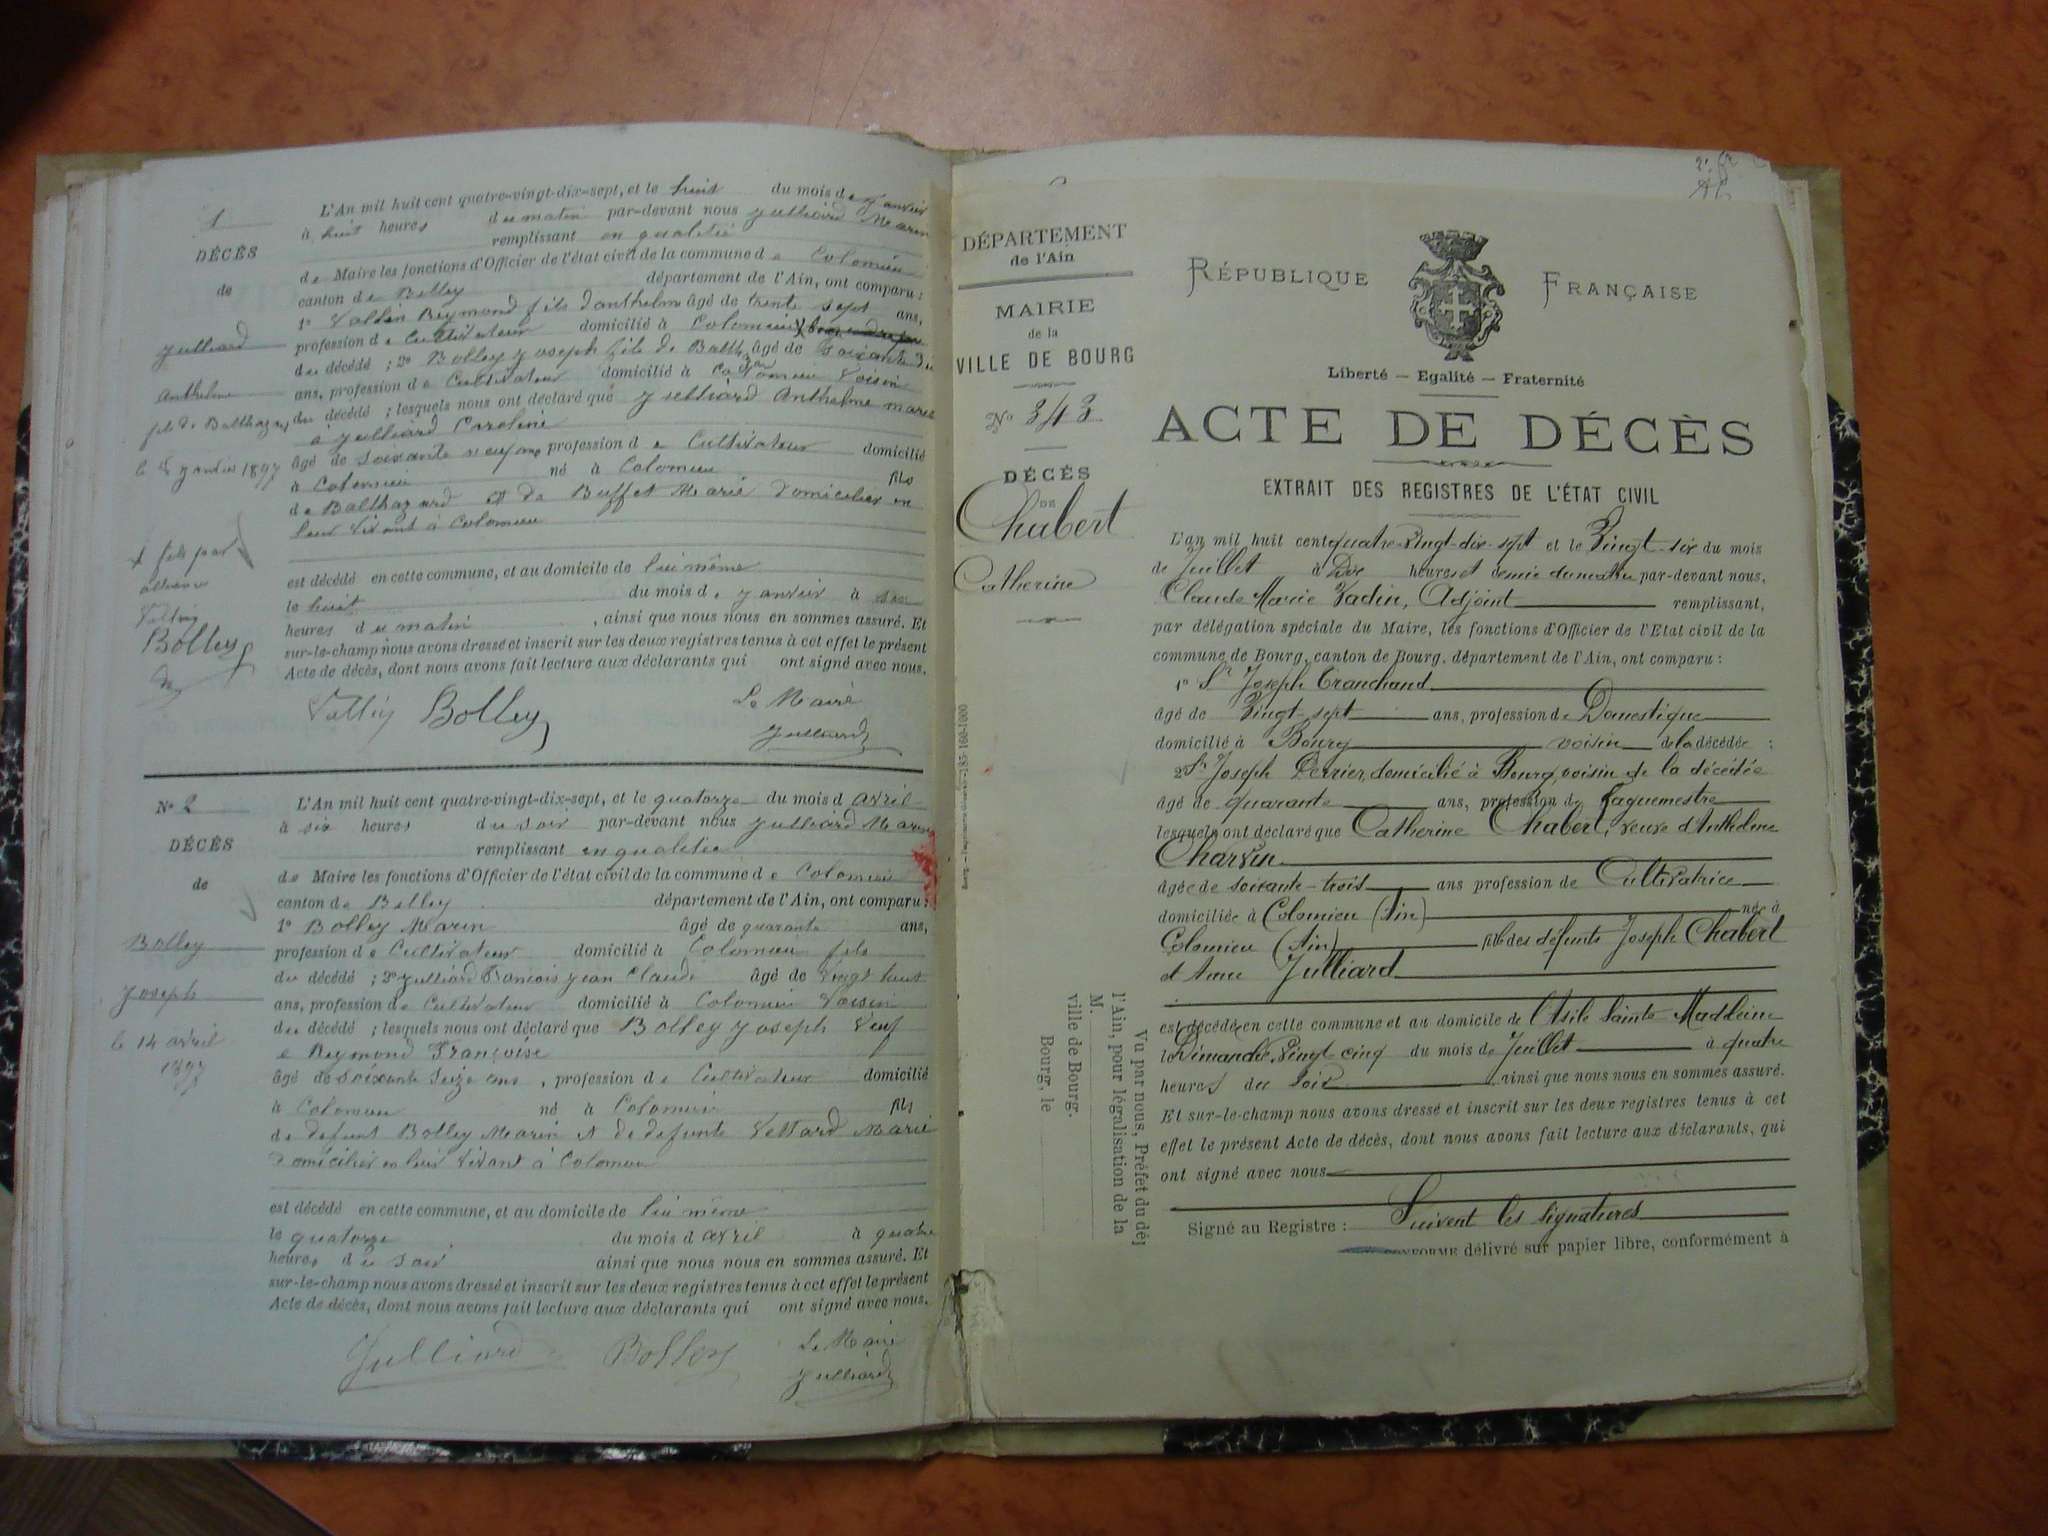 1
DÉCÈS
de
Julliard
Anthelme
fils de Balthazard
le 8 janvier 1897
+ fils par
alliance
Bolley
L'An mil huit cent quatre-vingt-dix-sept, et le huit du mois de janvier
à huit heures du matin par-devant nous Julliard Marin
remplissant en qualitié
de Maire les fonctions d'Officier de l'état civil de la commune de Colomieu
canton de Belley département de l'Ain, ont comparu :
1° Vallin Reymond fils d'anthelme âgé de trente sept ans,
profession de Cultivateur domicilié à Colomieu
du décédé ; 2° Bolley Joseph fils de Balth. âgé de soixante
ans, profession de Cultivateur domicilié à Colomieu Voisin
du décédé ; lesquels nous ont déclaré que Julliard Anthelme marié
à Julliard Caroline
âgé de soixante neuf ans profession de Cultivateur domicilié
à Colomieu né à Colomieu fils
de Balthazard et de Buffet Marie Domiciliés en
leur vivant à Colomieu
est décédé en cette commune, et au domicile de lui même
le huit du mois de janvier à
heures du matin, ainsi que nous nous en sommes assuré. Et
sur-le-champ nous avons dressé et inscrit sur les deux registres tenus à cet effet le présent
Acte de décès, dont nous avons fait lecture aux déclarants qui ont signé avec nous.
Bolley
Le Maire
Julliard
N° 2
DÉCÈS
de
Bolley
Joseph
le 14 avril
1897
L'An mil huit cent quatre-vingt-dix-sept, et le quatorze du mois d avril
à six heures du soir par-devant nous Julliard Marin
remplissant en qualitée
de Maire les fonctions d'Officier de l'état civil de la commune de Colomieu
canton de Belley département de l'Ain, ont comparu :
1° Bolley Marin âgé de quarante ans,
profession de Cultivateur domicilié à Colomieu fils
du décédé ; 2° Julliard François Jean Claude âgé de vingt huit
ans, profession de Cultivateur domicilié à Colomieu Voisin
du décédé ; lesquels nous ont déclaré que Bolley Joseph Veuf
e Reymond Françoise
âgé de soixante seize ans, profession de Cultivateur domicilié
à Colomieu né à Colomieu fils
de defunt Bolley Marin et de defunte Vettard Marie
Domiciliés en leur vivant à Colomieu
est décédé en cette commune, et au domicile de lui même
le quatorze du mois d avril à quatre
heures du soir ainsi que nous nous en sommes assuré. Et
sur-le-champ nous avons dressé et inscrit sur les deux registres tenus à cet effet le présent
Acte de décès, dont nous avons fait lecture aux déclarants qui ont signé avec nous.
Julliard Bolley
Le Maire
Julliard
DÉPARTEMENT
de l'Ain
MAIRIE
de la
VILLE DE BOURG
N° 343
DÉCÈS
DE
Chabert
Catherine
Vu par nous, Préfet du dép
l'Ain, pour légalisation de la
M.
ville de Bourg.
Bourg, le
RÉPUBLIQUE FRANÇAISE
Liberté — Egalité — Fraternité
ACTE DE DÉCÈS
EXTRAIT DES REGISTRES DE L'ÉTAT CIVIL
L'an mil huit cent quatre-vingt-dix-sept et le Vingt-six du mois
de Juillet à Dix heures et demie du matin par-devant nous,
Claude Marie Vadin, Adjoint remplissant,
par délégation spéciale du Maire, les fonctions d'Officier de l'Etat civil de la
commune de Bourg, canton de Bourg, département de l'Ain, ont comparu :
1° Sr Joseph Tranchand
âgé de Vingt-sept ans, profession de Domestique
domicilié à Bourg voisin de la décédée ;
2° Sr Joseph Perrier, domicilié à Bourg, voisin de la décédée
âgé de quarante ans, profession de Vaguemestre
lesquels ont déclaré que Catherine Chabert, veuve d'Anthelme
Charvin
âgée de soixante-trois ans profession de Cultivatrice
domiciliée à Colomieu (Ain) née à
Colomieu (Ain) fille des défunts Joseph Chabert
et Anne Julliard
est décédée en cette commune et au domicile de l'Asile Sainte Madeleine
le Dimanche Vingt-cinq du mois de Juillet à quatre
heures du Soir ainsi que nous nous en sommes assuré.
Et sur-le-champ nous avons dressé et inscrit sur les deux registres tenus à cet
effet le présent Acte de décès, dont nous avons fait lecture aux déclarants, qui
ont signé avec nous
Signé au Registre : Suivent les signatures
CONFORME délivré sur papier libre, conformément à